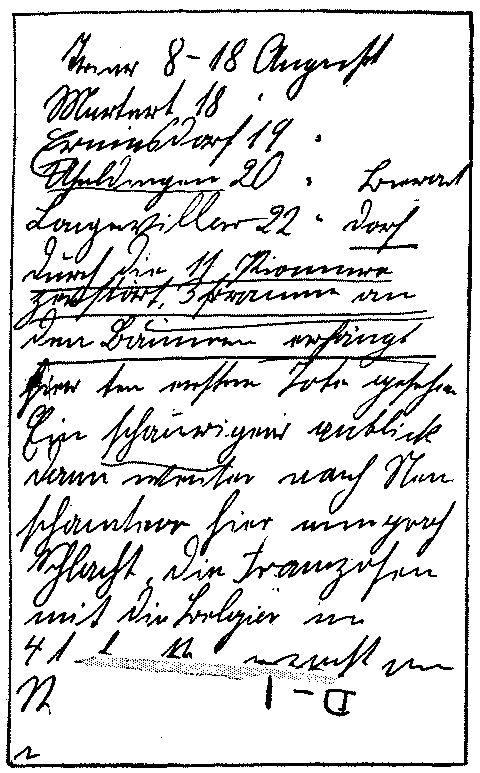 Trier 8-18 August
Mertert 18 "
Erninsdorf 19 "
Useldingen 20 " Biwak
Longeviller 22 " Dorf
durch die 11 Pionniere
zerstört, 3 Frauen an
den Bäumen erhängt
hier den ersten Tote gesehen
Ein schauriger anblick
dann weiter nach Neu
hier nun große
Schlacht, die Franzosen
mit die Belgier im
41
D-1